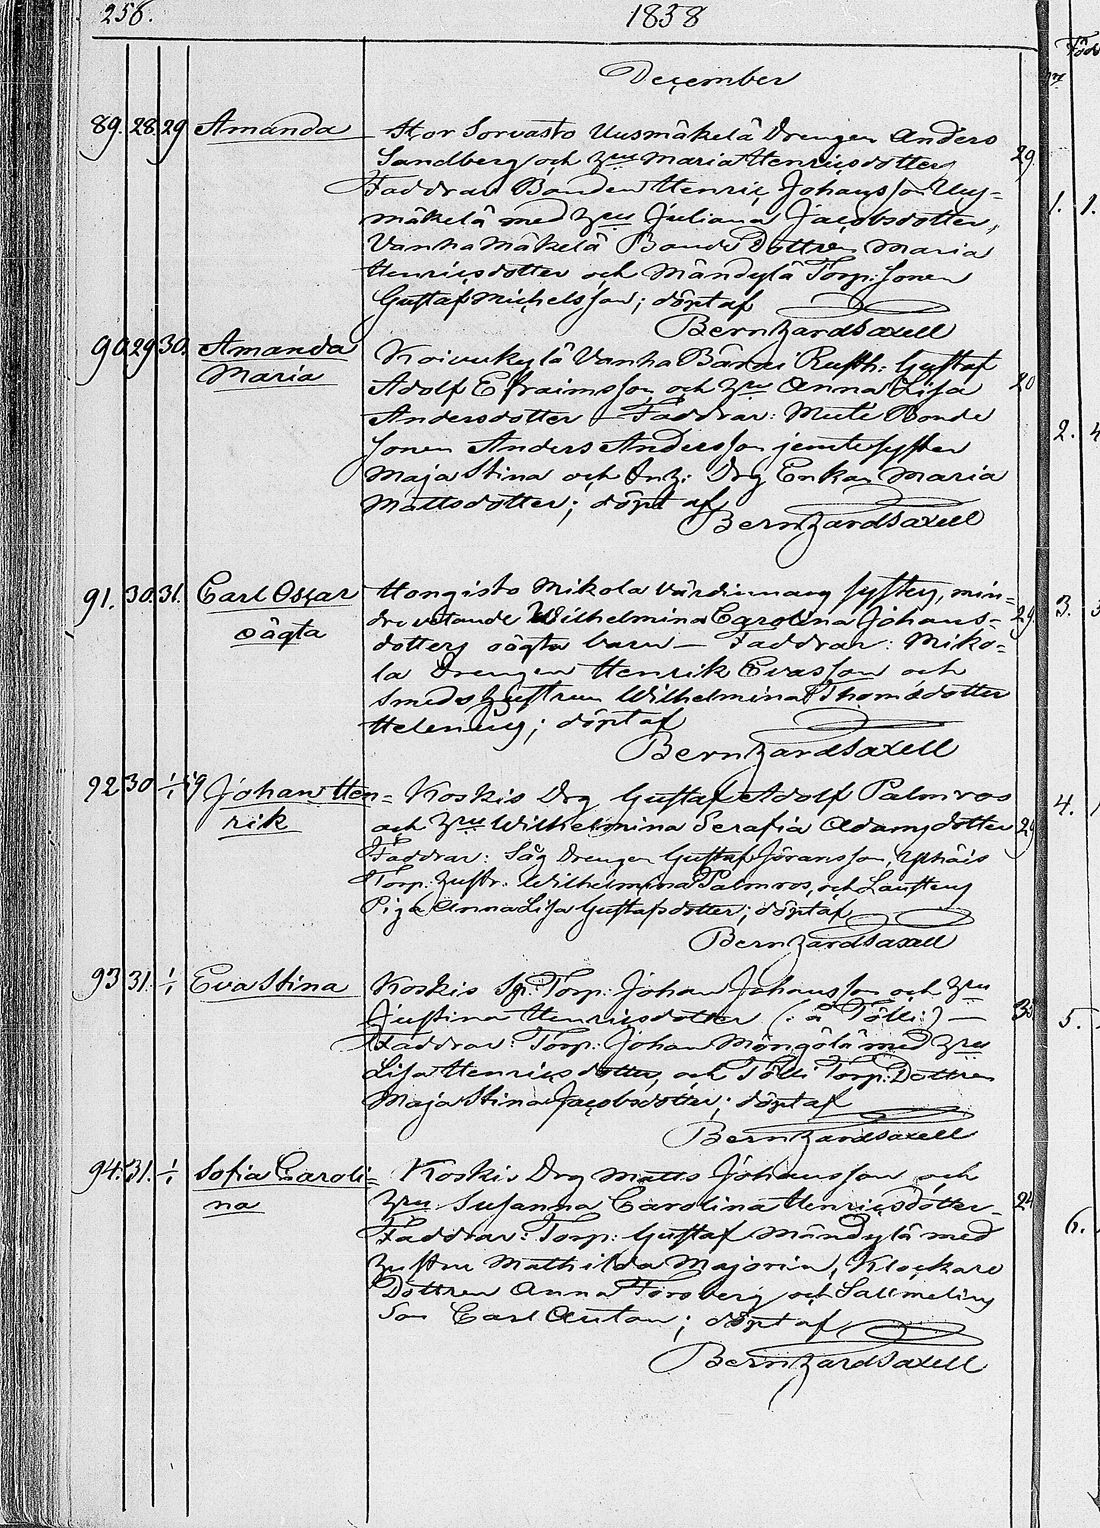 256. 1838
December
89. 28. 29 Amanda Stor Sorvasto Uusmäkelä Drengen Anders
Sandberg och Hru Maria Henricsdotter 29
Faddrar Bonden Henric Johansson Uus-
mäkelä med Hru Juliana Jacobsdotter,
Vanha Mäkelä Bonde Dottren Maria
Henricsdotter och Mändylä Torp: Sonen
Gustaf Michelsson; döpt af
Bernhard Saxell
90. 29. 30. Amanda Koivukylä Vanha Rusth: Gustaf
Maria Adolf Efraimsson och Hru Anna Lisa 20
Andersdotter Faddrar: Bonde
Sonen Anders Andersson jemte syster
Maja Stina och Drg Enkan Maria
Mattsdotter; döpt af
Bernhard Saxell
91. 30. 31. Carl Oscar Hongisto Mikola syster, min-
oägta dre vetande Wilhelmina Carolina Johans- 29
dotters oägta barn — Faddrar: Miko-
la Drengen Henrik Evasson och
Smeds hustrun Wilhelmina Thomædotter
döpt af
Bernhard Saxell
92 30 1/1 39 Johan Hen- Koskis Drg Gustaf Adolf Palmros
rik och Hru Wilhelmina Serafia Adamsdotter 29
Faddrar: Såg Drengen Gustaf Göransson,
Torp: hustr: Wilhelmina Palmros, och
Piga Anna Lisa Gustafsdotter; döpt af
Bernhard Saxell
93 31. 1/1 Eva Stina Koskis Torp: Johan Johansson och Hru
Justina Henricsdotter (: å Tölli :) — 35
Faddrar: Torp: Johan Mongola med Hru
Lisa Henricsdotter, och Tölli Torp: Dottren
Maja Stina Jacobsdotter; döpt af
Bernhard Saxell
94. 31. 1/1 Sofia Caroli- Koskis Drg Matts Johansson och
na Hru Susanna Carolina Henricsdotter 24
Faddrar: Torp: Gustaf Mändylä med
hustru Mathilda Majorin, Klockare
Dottren Anna Forsberg och
Son Carl Anton; döpt af
Bernhard Saxell
Föd
1. 1.
2. 4
3. 3
4. 1
5.
6.